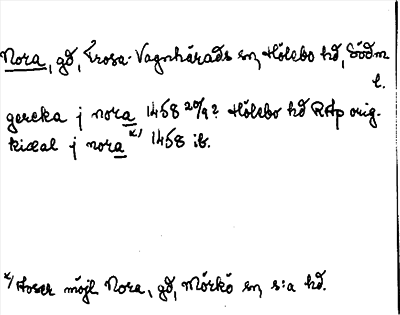 Nora, gd, Trosa-Vagnhärads sn, Hölebo hd, Södm
l.
gereka j nora 1458 20/9? Hölebo hd RAp orig.
j nora x) 1458 ib.
x) Avser möjl. Nora, gd, Mörkö sn, s:a hd.